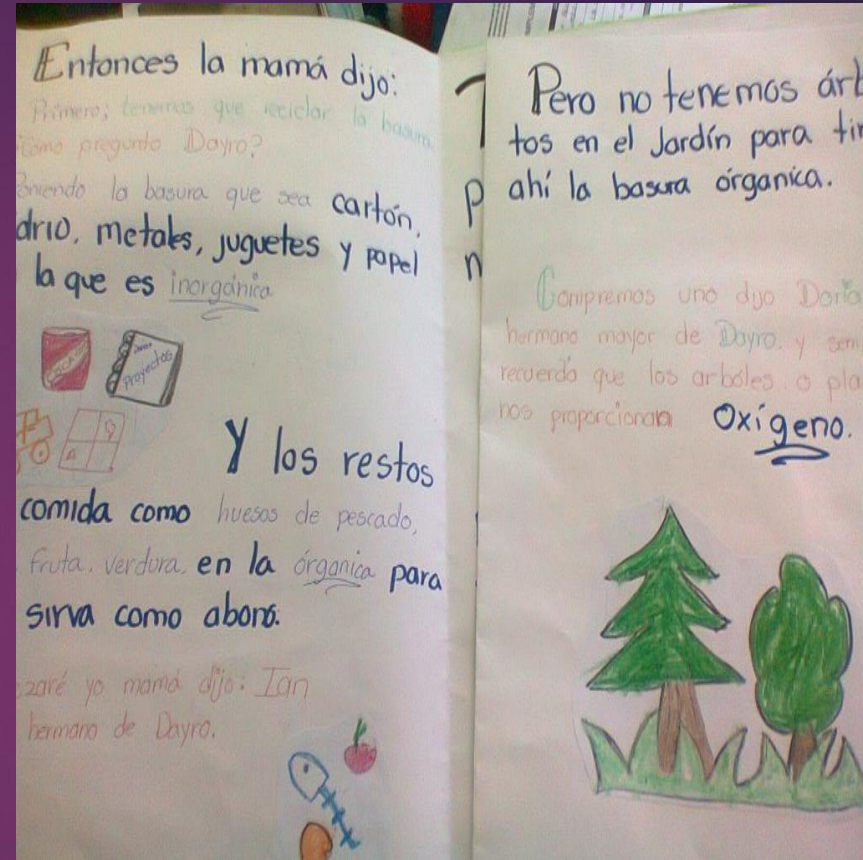 Entonces la mamá dijo:
Primero; tenemos que reciclar la basura
como pregunto Dayro?
Poniendo la basura que sea cartón,
drio, metales, juguetes y papel
la que es inorgánica
Proyectos
Y los restos
comida como huesos de pescado,
fruta, verdura, en la órganica para
sirva como abono.
zaré yo mamá dijo: Ian
hermano de Dayro.
P
n
Pero no tenemos árb
tos en el Jardín para tir
ahí la basura órganica.
Compremos uno dijo Dario
hermano mayor de Dayro, y sem
recuerda que los arboles o pla
nos proporcionan Oxígeno.